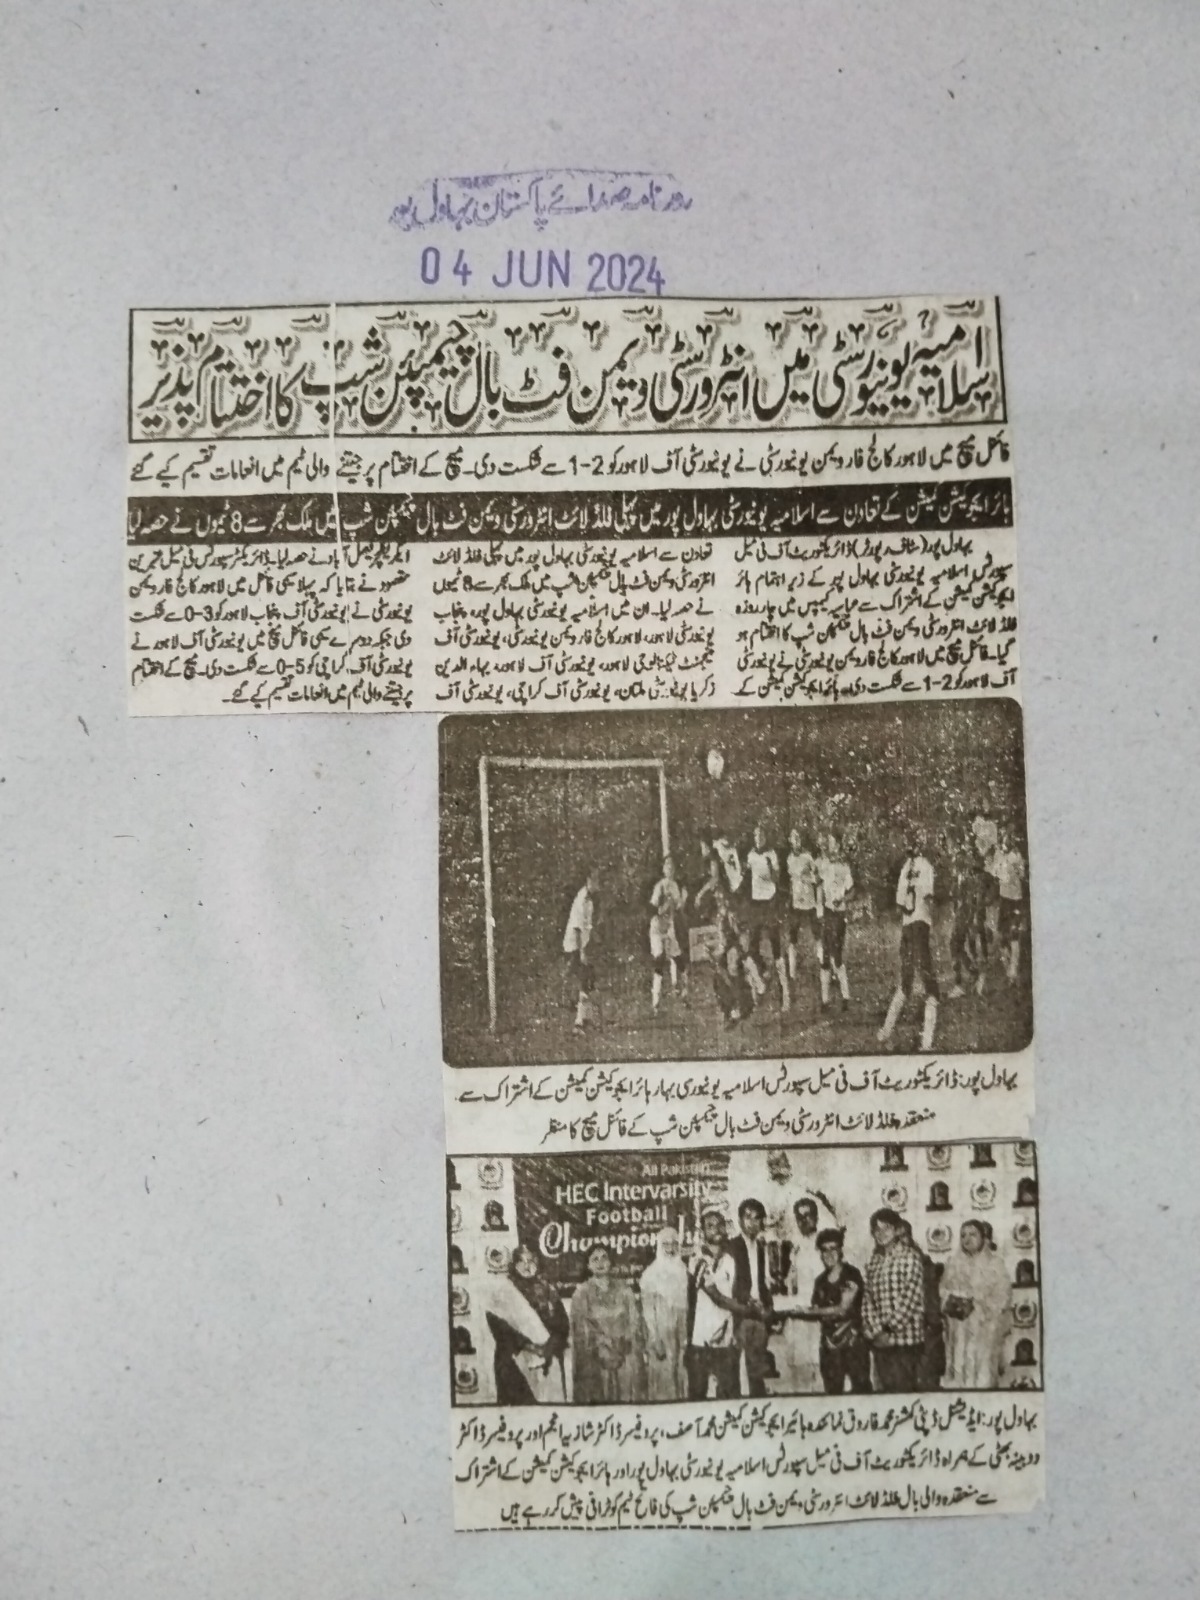 روزنامہ صدائے پاکستان بہاول پور
04 JUN 2024
اسلامیہ یونیورسٹی میں انٹرورسٹی ویمن فٹ بال چیمپئن شپ کا اختتام پذیر
فائنل میچ میں لاہور کالج فار ویمن یونیورسٹی نے یونیورسٹی آف لاہور کو 2-1 سے شکست دی۔ میچ کے اختتام پر جیتنے والی ٹیم میں انعامات تقسیم کیے گئے
ہائر ایجوکیشن کمیشن کے تعاون سے اسلامیہ یونیورسٹی بہاول پور میں پہلی فلڈ لائٹ انٹرورسٹی ویمن فٹ بال چیمپئن شپ میں ملک بھر سے 8 ٹیموں نے حصہ لیا
بہاول پور (سٹاف رپورٹر) ڈائریکٹوریٹ آف فی میل
سپورٹس اسلامیہ یونیورسٹی بہاول پور کے زیر اہتمام ہائر
ایجوکیشن کمیشن کے اشتراک سے عباسیہ کیمپس میں چار روزہ
فلڈ لائٹ انٹرورسٹی ویمن فٹ بال چیمپئن شپ کا اختتام ہو
گیا۔ فائنل میچ میں لاہور کالج فار ویمن یونیورسٹی نے یونیورسٹی
آف لاہور کو 2-1 سے شکست دی۔ ہائر ایجوکیشن کمیشن کے
تعاون سے اسلامیہ یونیورسٹی بہاول پور میں پہلی فلڈ لائٹ
انٹرورسٹی ویمن فٹ بال چیمپئن شپ میں ملک بھر سے 8 ٹیموں
نے حصہ لیا۔ ان میں اسلامیہ یونیورسٹی بہاول پور، پنجاب
یونیورسٹی لاہور، لاہور کالج فار ویمن یونیورسٹی، یونیورسٹی آف
مینجمنٹ ٹیکنالوجی لاہور، یونیورسٹی آف لاہور، بہاء الدین
زکریا یونیورسٹی ملتان، یونیورسٹی آف کراچی، یونیورسٹی آف
ایگریکلچر فیصل آباد نے حصہ لیا۔ ڈائریکٹر سپورٹس فی میل
مقصود نے بتایا کہ پہلا سیمی فائنل میں لاہور کالج فار ویمن
یونیورسٹی نے یونیورسٹی آف پنجاب لاہور کو 3-0 سے شکست
دی جبکہ دوم سیمی فائنل میچ میں یونیورسٹی آف لاہور نے
یونیورسٹی آف کراچی کو 5-0 سے شکست دی۔ میچ کے اختتام
پر جیتنے والی ٹیم میں انعامات تقسیم کیے گئے۔
بہاول پور: ڈائریکٹوریٹ آف فی میل سپورٹس اسلامیہ یونیورسٹی بہار ہائر ایجوکیشن کمیشن کے اشتراک سے
منعقدہ فلڈ لائٹ انٹرورسٹی ویمن فٹ بال چیمپئن شپ کے فائنل میچ کا منظر
All Pakistan
HEC Intervarsity
Football
Championship
بہاول پور: ایڈیشنل ڈپٹی کمشنر محمد فاروق نمائندہ ہائیر ایجوکیشن کمیشن محمد آصف، پروفیسر ڈاکٹر شازیہ انجم اور پروفیسر ڈاکٹر
روبینہ بھٹی کے ہمراہ ڈائریکٹوریٹ آف فی میل سپورٹس اسلامیہ یونیورسٹی بہاول پور اور ہائر ایجوکیشن کمیشن کے اشتراک
سے منعقدہ والی بال فلڈ لائٹ انٹرورسٹی ویمن فٹ بال چیمپئن شپ کی فاتح ٹیم کو ٹرافی پیش کر رہے ہیں